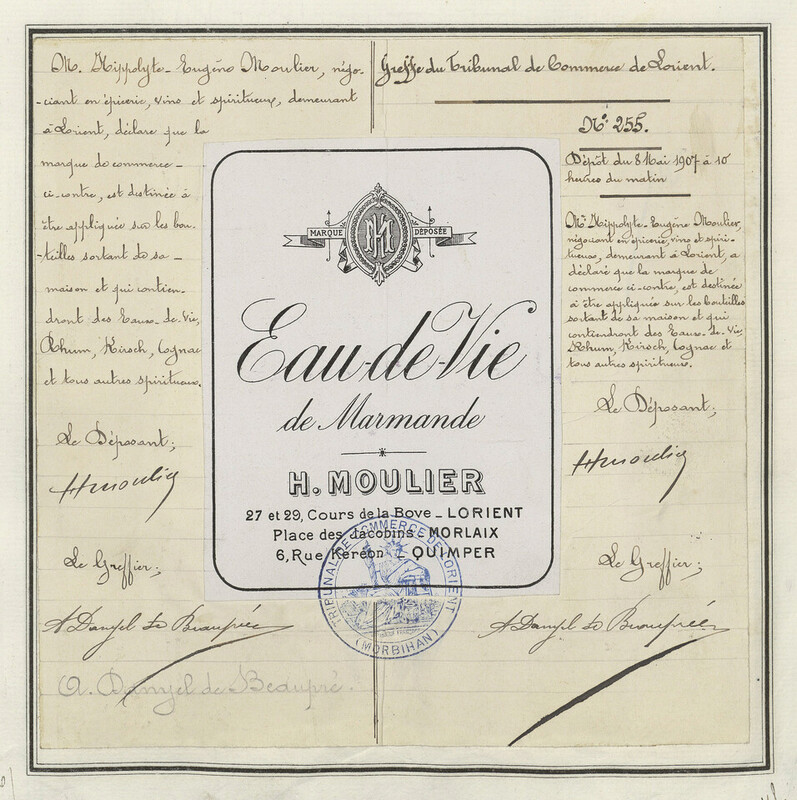 M. Hippolyte-Eugène Moulier, négo-
-ciant en épicerie, vins et spiritueux, demeurant
à Lorient, déclare que la
marque de commerce -
ci-contre, est destinée à
être appliquée sur les bou-
-teilles sortant de sa -
maison et qui contien-
dront des Eaux-de-Vie,
Rhum, Kirsch, Cognac
et tous autres spiritueux.
Le Déposant;
Hmoulier
Le Greffier;
A Danyel de Beaupré
A. Danyel de Beaupré.
MARQUE DÉPOSÉE
HM
Eau-de-Vie
de Marmande
H. MOULIER
27 et 29, Cours de la Bove - LORIENT
Place des Jacobins - MORLAIX
6, Rue Keréon - QUIMPER
TRIBUNAL DE COMMERCE DE LORIENT
(MORBIHAN)
Greffe du Tribunal de Commerce de Lorient.
N° 255.
Dépôt du 8 Mai 1907 à 10
heures du matin
Mr Hippolyte-Eugène Moulier,
négociant en épicerie, vins et spiri-
tueux, demeurant à Lorient, a
déclaré que la marque de
commerce ci-contre, est destinée
à être appliquée sur les bouteilles
sortant de sa maison et qui
contiendront des Eaux-de-Vie,
Rhum, Kirsch, Cognac et
tous autres spiritueux.
Le Déposant;
Hmoulier
Le Greffier;
A Danyel de Beaupré